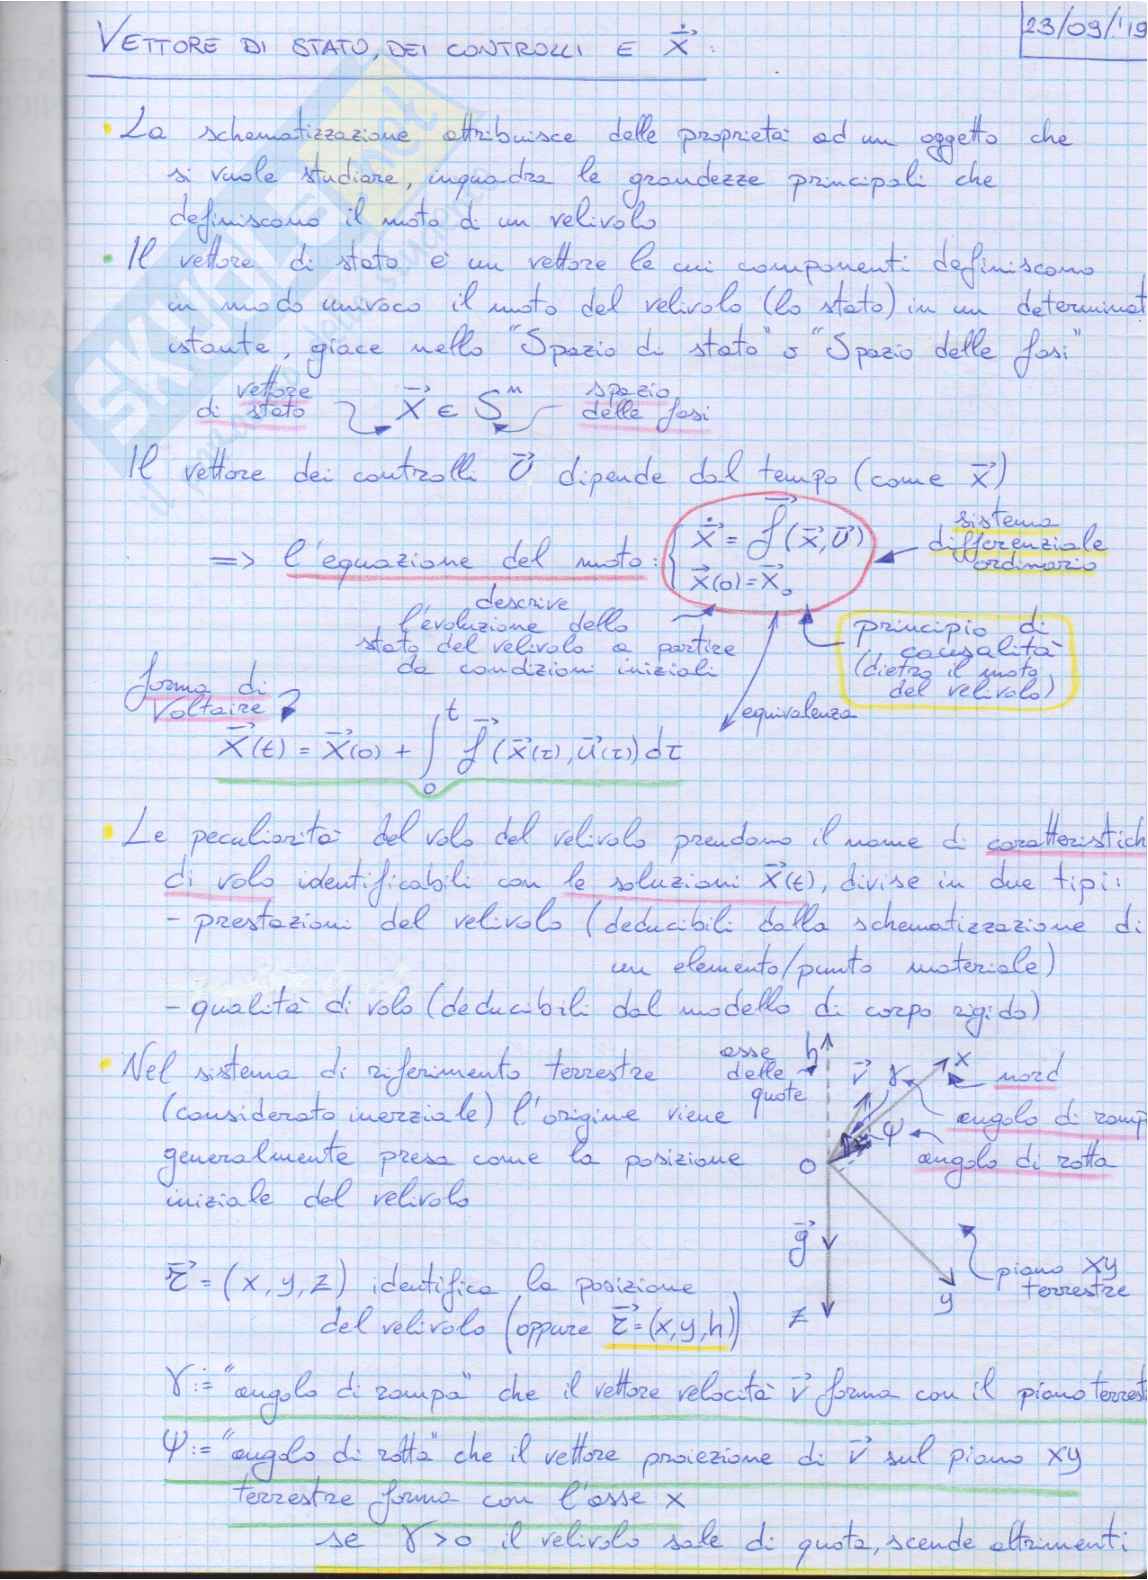 23/09/'19
VETTORE DI STATO, DEI CONTROLLI E Ẋ⃗ :
• La schematizzazione attribuisce delle proprietà ad un oggetto che
si vuole studiare, inquadra le grandezze principali che
definiscono il moto di un velivolo
• Il vettore di stato è un vettore le cui componenti definiscono
in modo univoco il moto del velivolo (lo stato) in un determinat
istante, giace nello "Spazio di stato" o "Spazio delle fasi"
vettore di stato X⃗ ∈ Sⁿ spazio delle fasi
Il vettore dei controlli U⃗ dipende dal tempo (come X⃗)
=> l'equazione del moto: { Ẋ⃗ = f⃗(X⃗, U⃗)
X⃗(0) = X⃗₀
sistema
differenziale
ordinario
descrive
l'evoluzione dello
stato del velivolo a partire
da condizioni iniziali
principio di
causalità
(dietro il moto
del velivolo)
equivalenza
forma di
Voltaire
X⃗(t) = X⃗(0) + ∫₀ᵗ f⃗(X⃗(τ), U⃗(τ)) dτ
• Le peculiarità del volo del velivolo prendono il nome di caratteristich
di volo identificabili con le soluzioni X⃗(t), divise in due tipi:
- prestazioni del velivolo (deducibili dalla schematizzazione di
un elemento/punto materiale)
- qualità di volo (deducibili dal modello di corpo rigido)
• Nel sistema di riferimento terrestre
(considerato inerziale) l'origine viene
generalmente presa come la posizione
iniziale del velivolo
asse
delle
quote
h
v⃗
γ
x
nord
angolo di ramp
ψ
angolo di rotta
O
g⃗
z
y
piano xy
terrestre
r⃗ = (x, y, z) identifica la posizione
del velivolo (oppure r⃗ = (x, y, h))
γ := "angolo di rampa" che il vettore velocità v⃗ forma con il piano terrest
ψ := "angolo di rotta" che il vettore proiezione di v⃗ sul piano xy
terrestre forma con l'asse x
se γ > 0 il velivolo sale di quota, scende altrimenti
SKUOLA.net